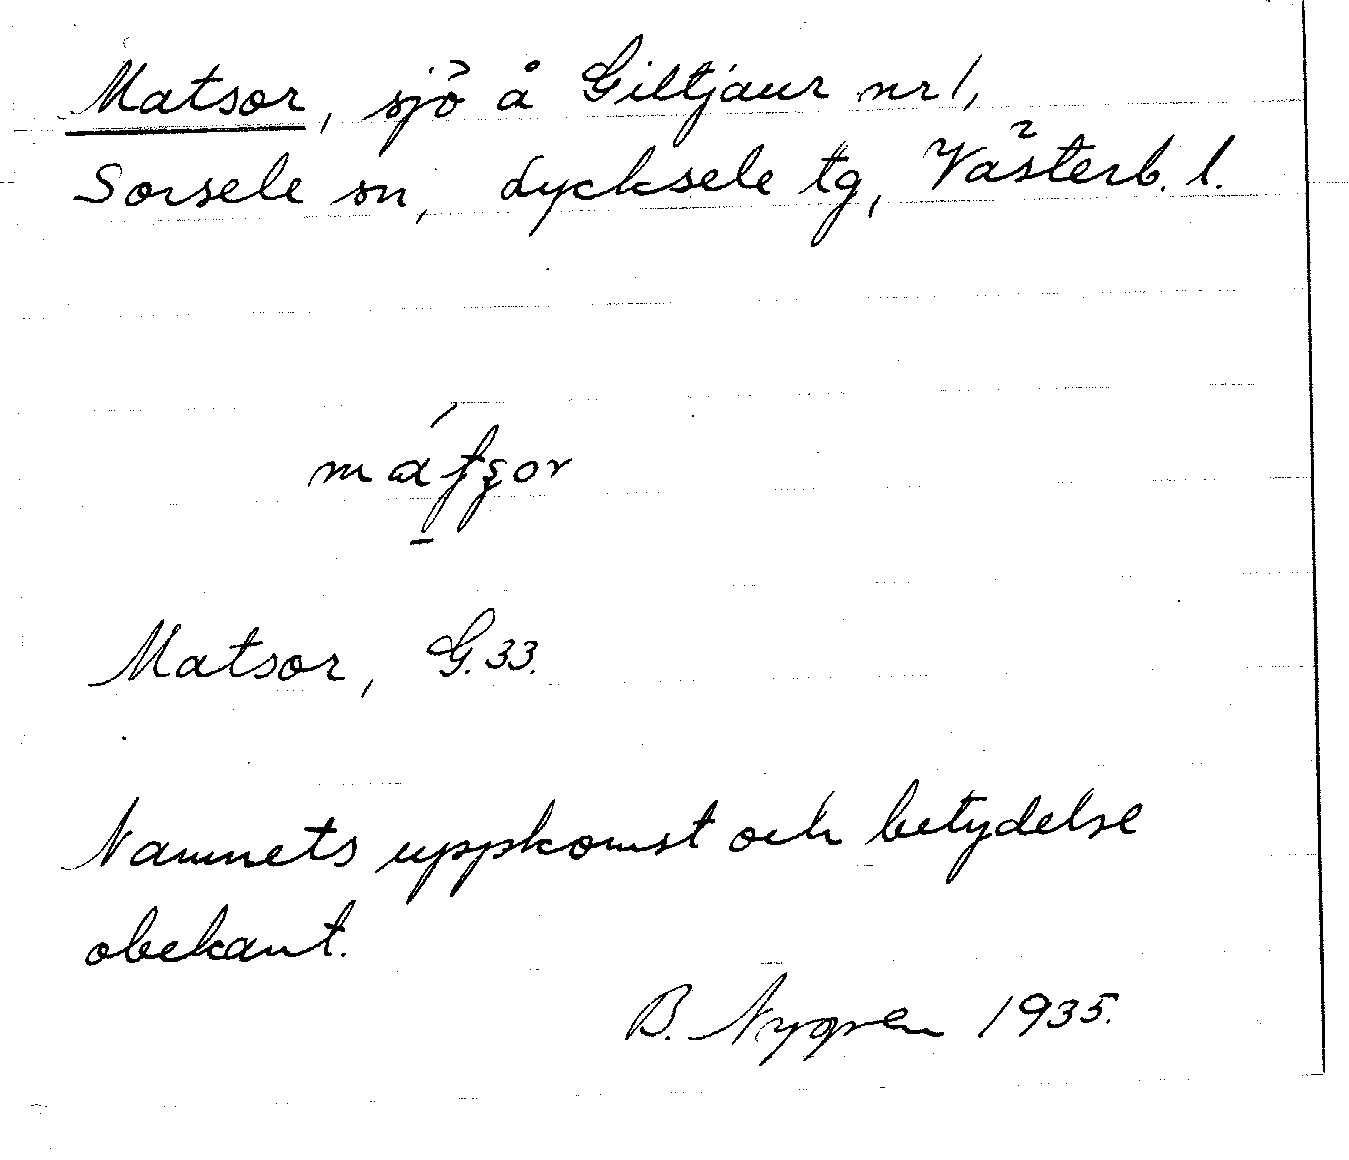 Matsor, sjö å Giltjaur nr 1,
Sorsele sn, Lycksele tg, Västerb. l.
Matsor, G. 33.
Namnets uppkomst och betydelse
obekant.
B. Nygren 1935.